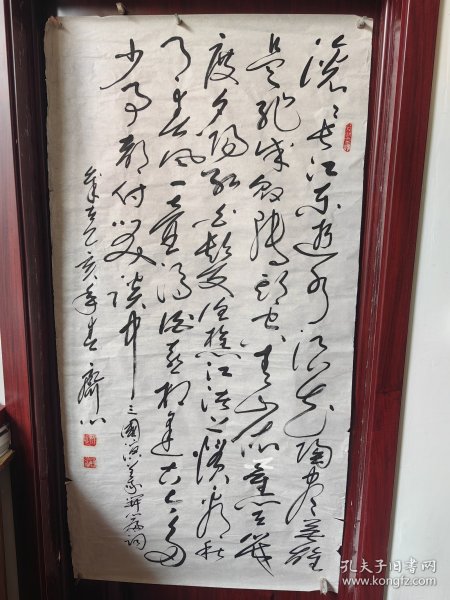 滚滚长江东逝水浪花淘尽英雄
是非成败转头空青山依旧在几
度夕阳红白发渔樵江渚上惯看秋
月春风一壶浊酒喜相逢古今多
少事都付笑谈中三国演义开篇词
亥年春
孔夫子旧书网
kongfz.com